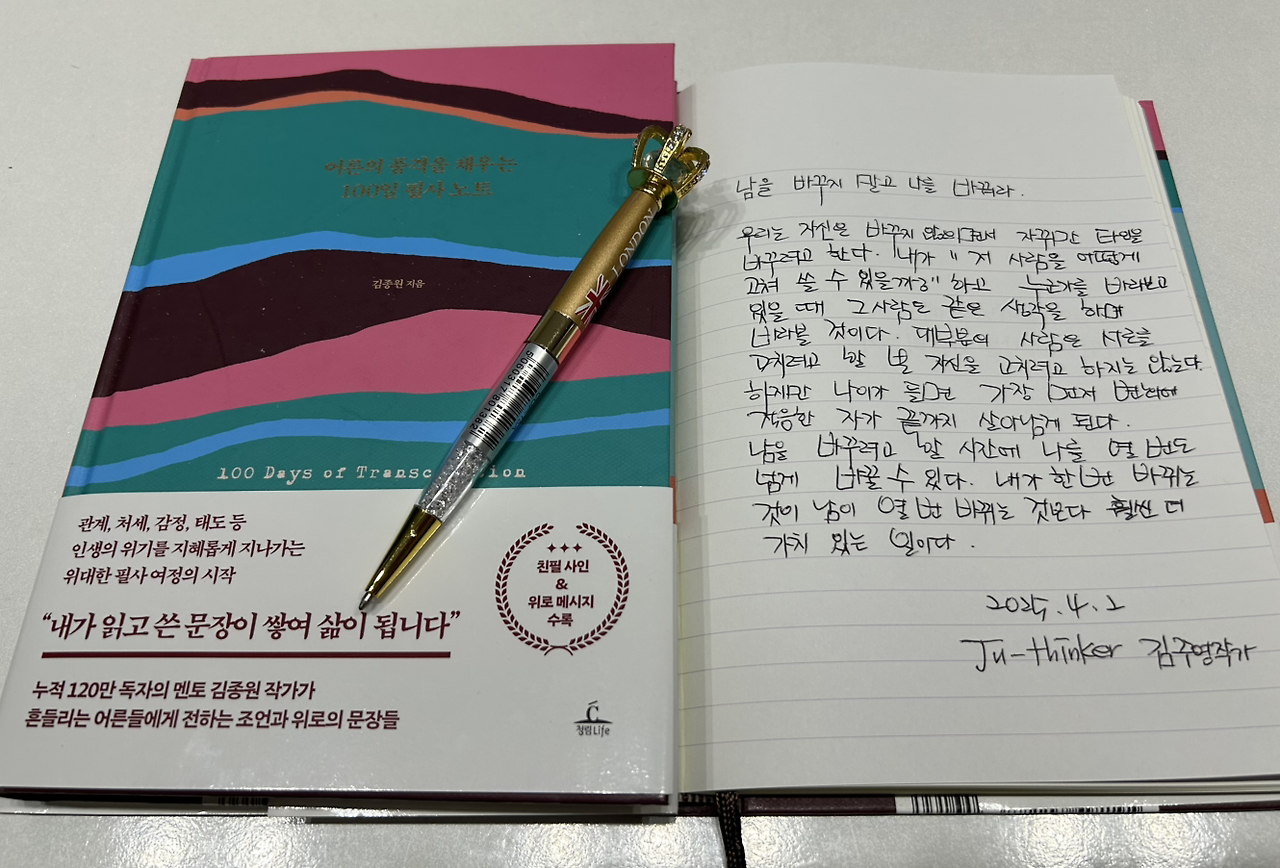 어른의 품격을 채우는
100일 필사 노트
김종원 지음
100 Days of Transc ion
관계, 처세, 감정, 태도 등
인생의 위기를 지혜롭게 지나가는
위대한 필사 여정의 시작
“내가 읽고 쓴 문장이 쌓여 삶이 됩니다”
누적 120만 독자의 멘토 김종원 작가가
흔들리는 어른들에게 전하는 조언과 위로의 문장들
친필 사인
&
위로 메시지
수록
청림Life
LONDON
5060317801362
남을 바꾸지 말고 나를 바꿔라.
우리는 자신은 바꾸지 않으면서 자꾸만 타인을
바꾸려고 한다. "내가 " 저 사람을 어떻게
고쳐 쓸 수 있을까?" 하고 누군가를 바라보고
있을 때 그 사람도 같은 생각을 하며
바라볼 것이다. 대부분의 사람은 서로를
고치려고 할 뿐 자신을 고치려고 하지는 않는다.
하지만 나이가 들면 가장 먼저 변화에
적응한 자가 끝까지 살아남게 된다.
남을 바꾸려고 할 시간에 나를 열 번도
넘게 바꿀 수 있다. 내가 한 번 바뀌는
것이 남이 열 번 바뀌는 것보다 훨씬 더
가치 있는 일이다.
2025.4.2
Ju-thinker 김주영작가